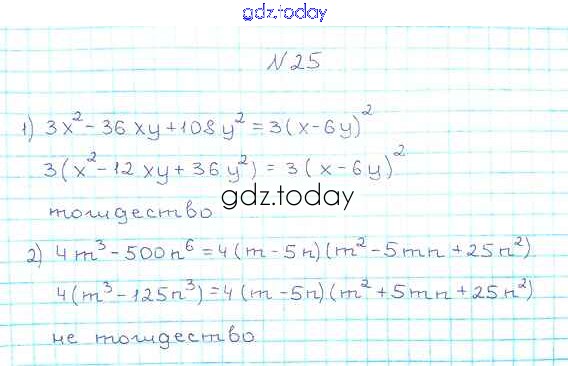 gdz.today
N 25
1) 3x² - 36xy + 108y² = 3(x - 6y)²
3(x² - 12xy + 36y²) = 3(x - 6y)²
gdz.today
тождество
2) 4m³ - 500n⁶ = 4(m - 5n)(m² - 5mn + 25n²)
4(m³ - 125n³) = 4(m - 5n)(m² + 5mn + 25n²)
не тождество